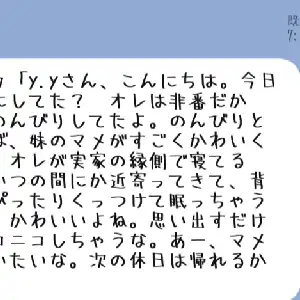 既
7:
「y.yさん、こんにちは。今日
にしてた？　オレは非番だか
のんびりしてたよ。のんびりと
ば、妹のマメがすごくかわいく
オレが実家の縁側で寝てる
いつの間にか近寄ってきて、背
ぴったりくっつけて眠っちゃう
かわいいよね。思い出すだけ
ニコしちゃうな。あー、マメ
いたいな。次の休日は帰れるか